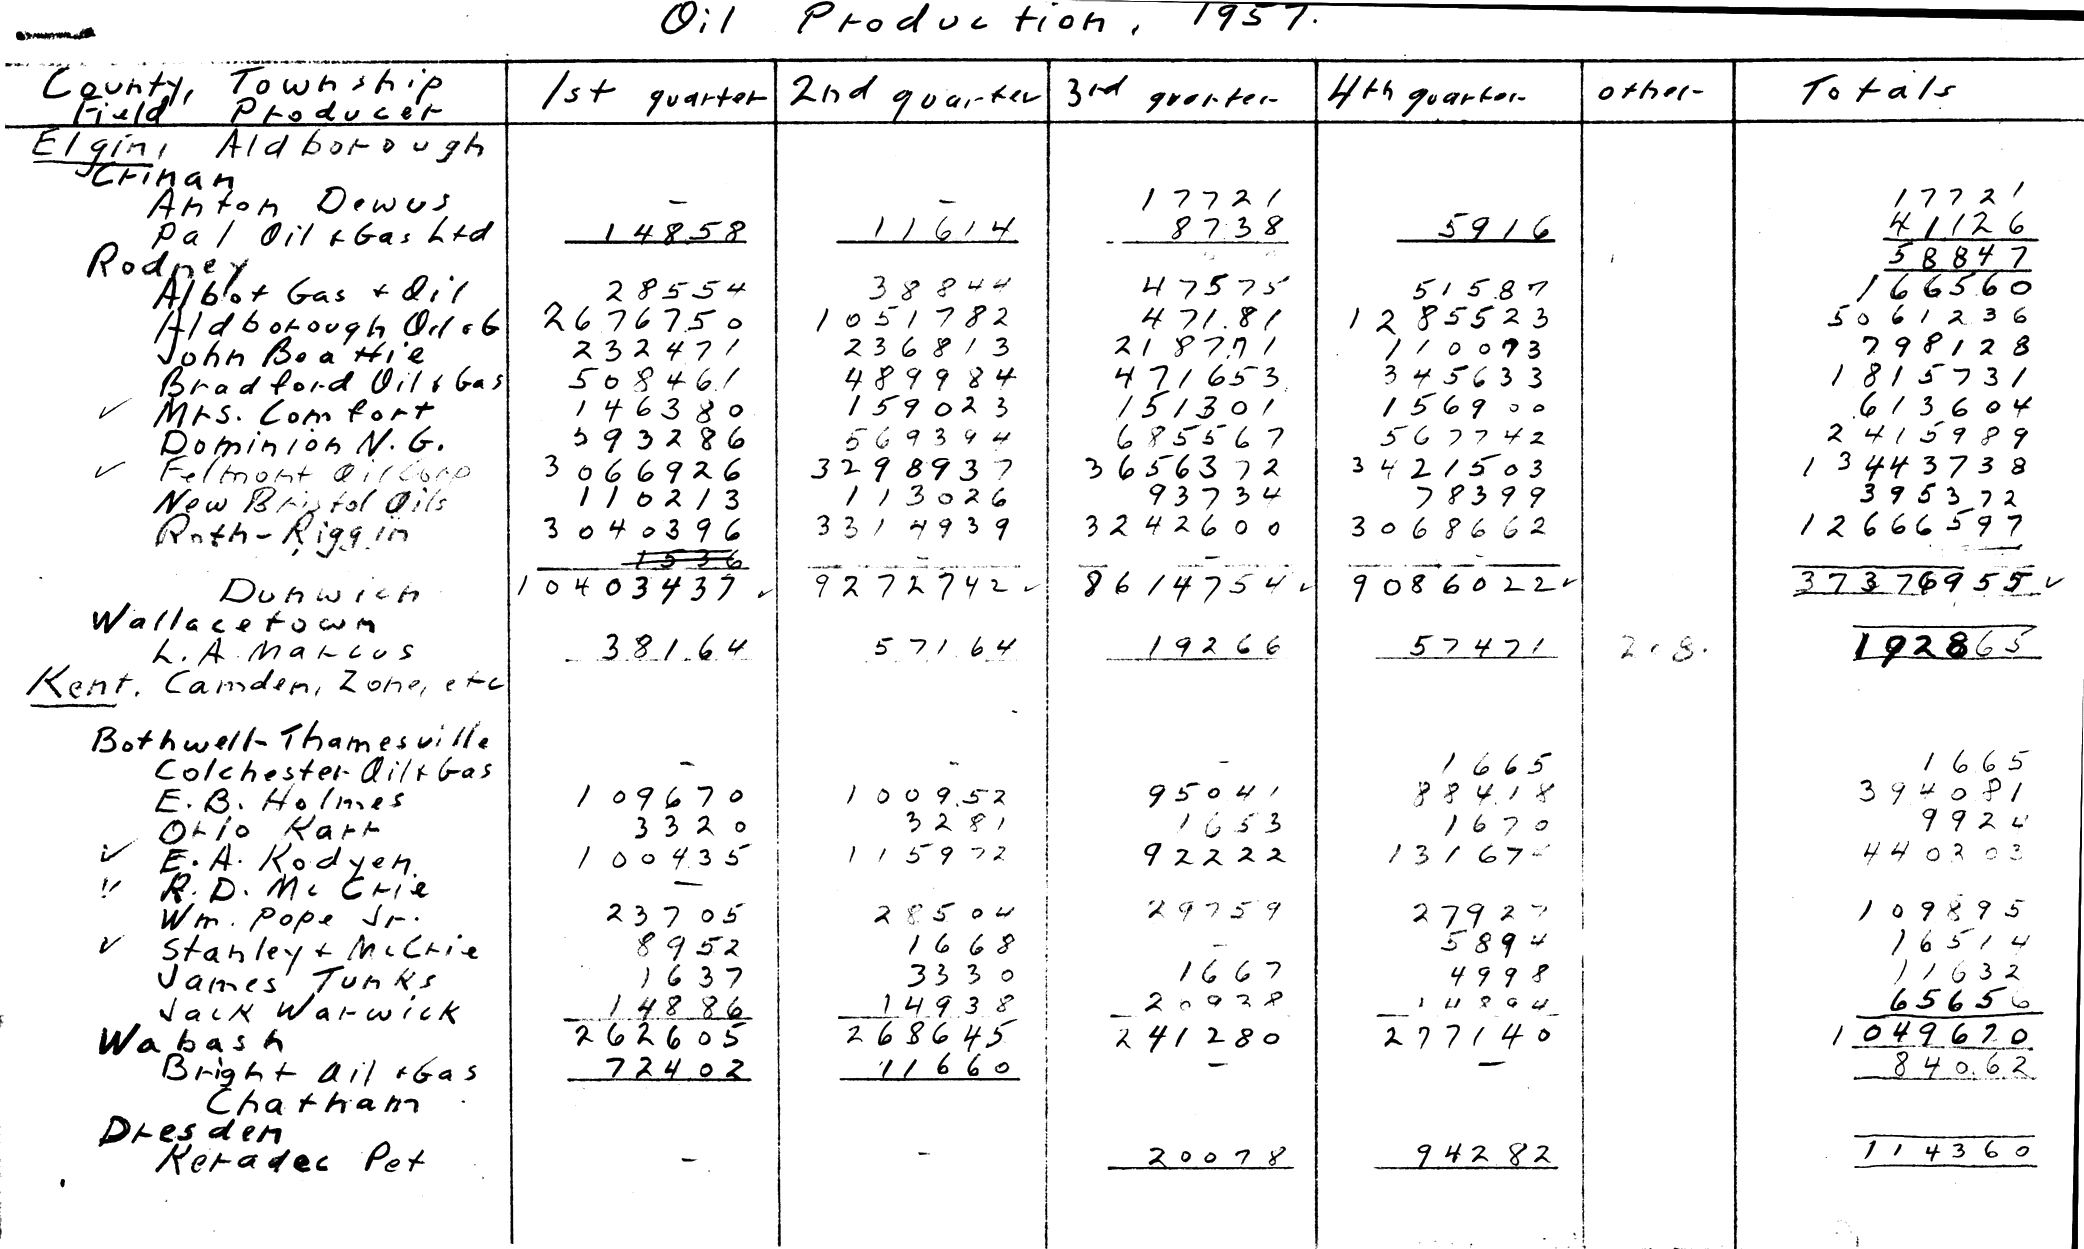 Oil Production, 1957.
County, Township 1st quarter 2nd quarter 3rd quarter 4th quarter other Totals
Field Producer
Elgin, Aldborough
Crinan
Anton Dewus - - 17721 17721
Pal Oil & Gas Ltd 14858 11614 8738 5916 41126
58847
Rodney
Albot Gas + Oil 28554 38844 47575 51587 166560
Aldborough Oil & G 2676750 1051782 47181 1285523 5061236
John Beattie 232471 236813 218771 110073 798128
Bradford Oil & Gas 508461 489984 471653 345633 1815731
✓ Mrs. Comfort 146380 159023 151301 156900 613604
Dominion N. G. 593286 569394 685567 567742 2415989
✓ Felmont Oil Corp 3066926 3298937 3656372 3421503 13443738
New Bristol Oils 110213 113026 93734 78399 395372
Roth-Riggin 3040396 3314939 3242600 3068662 12666597
1536 - - -
Dunwich 10403437 ✓ 9272742 ✓ 8614754 ✓ 9086022 ✓ 37376955 ✓
Wallacetown
L. A. Marcus 38164 57164 19266 57471 192865
Kent, Camden, Zone, etc
Bothwell-Thamesville
Colchester Oil & Gas - - - 1665 1665
E. B. Holmes 109670 100952 95041 88418 394081
Orlo Karr 3320 3281 1653 1670 9924
✓ E. A. Kodyen 100435 115972 92222 440203
" R. D. McCrie -
Wm. Pope Jr. 23705 28504 29759 27927 109895
✓ Stanley + McCrie 8952 1668 - 5894 16514
James Tunks 1637 3330 1667 4998 11632
Jack Warwick 14886 14938 20938 14894 65656
Wabash 262605 268645 241280 277140 1049670
Bright Oil & Gas 72402 11660 - - 84062
Chatham
Dresden
Keradec Pet - - 20078 94282 114360